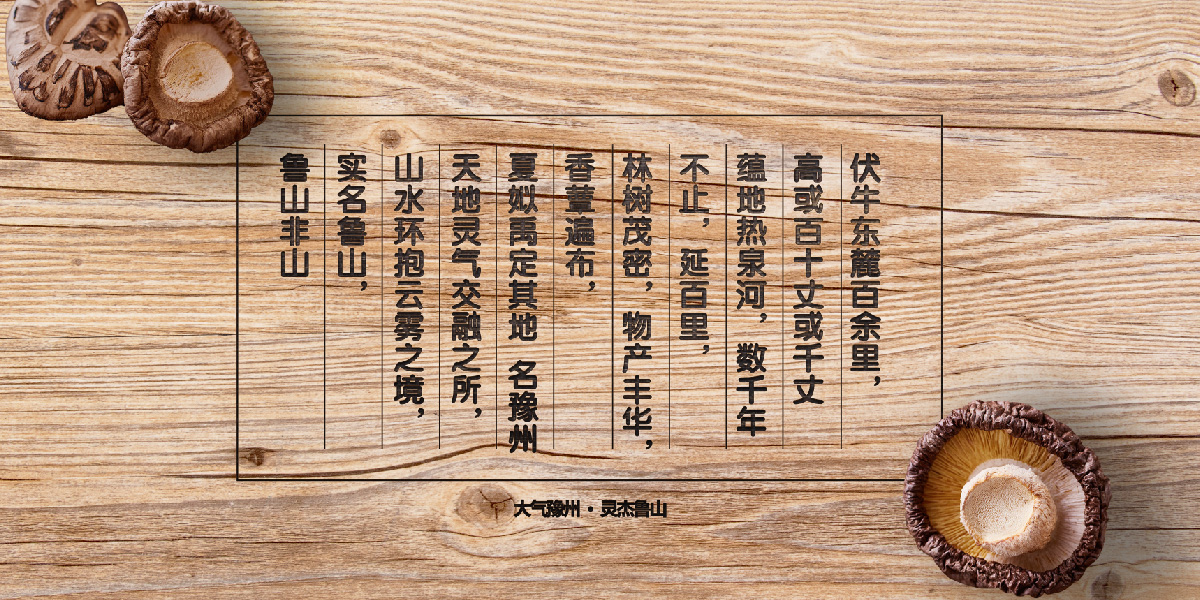 伏牛东麓百余里，
高或百十丈或千丈
蕴地热泉河，数千年
不止，延百里，
林树茂密，物产丰华，
香蕈遍布，
夏姒禹定其地 名豫州
天地灵气交融之所，
山水环抱云雾之境，
实名鲁山，
鲁山非山
大气豫州·灵杰鲁山